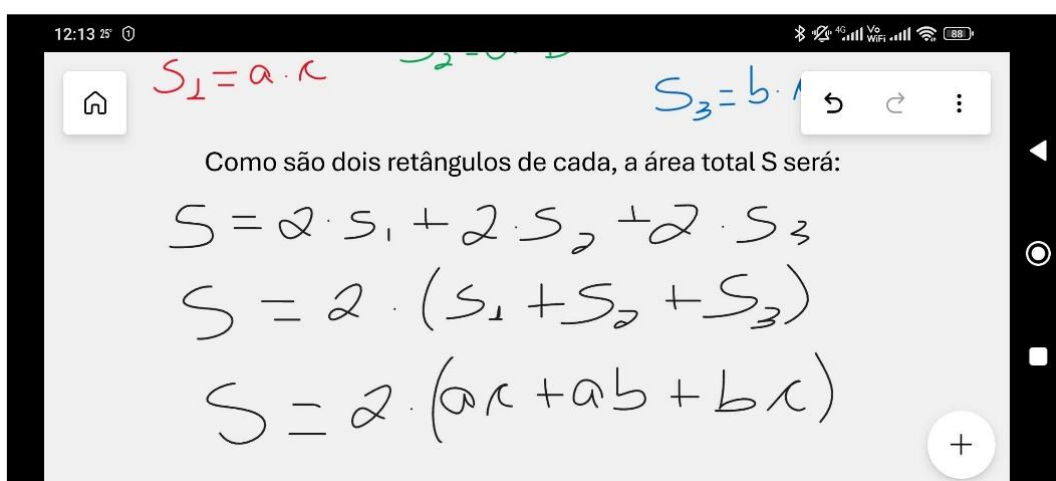 12:13 25° 1
4G Vo WiFi 88
S₁ = a · c
S₃ = b ·
Como são dois retângulos de cada, a área total S será:
S = 2 · S₁ + 2 · S₂ + 2 · S₃
S = 2 · (S₁ + S₂ + S₃)
S = 2 · (ac + ab + bc)